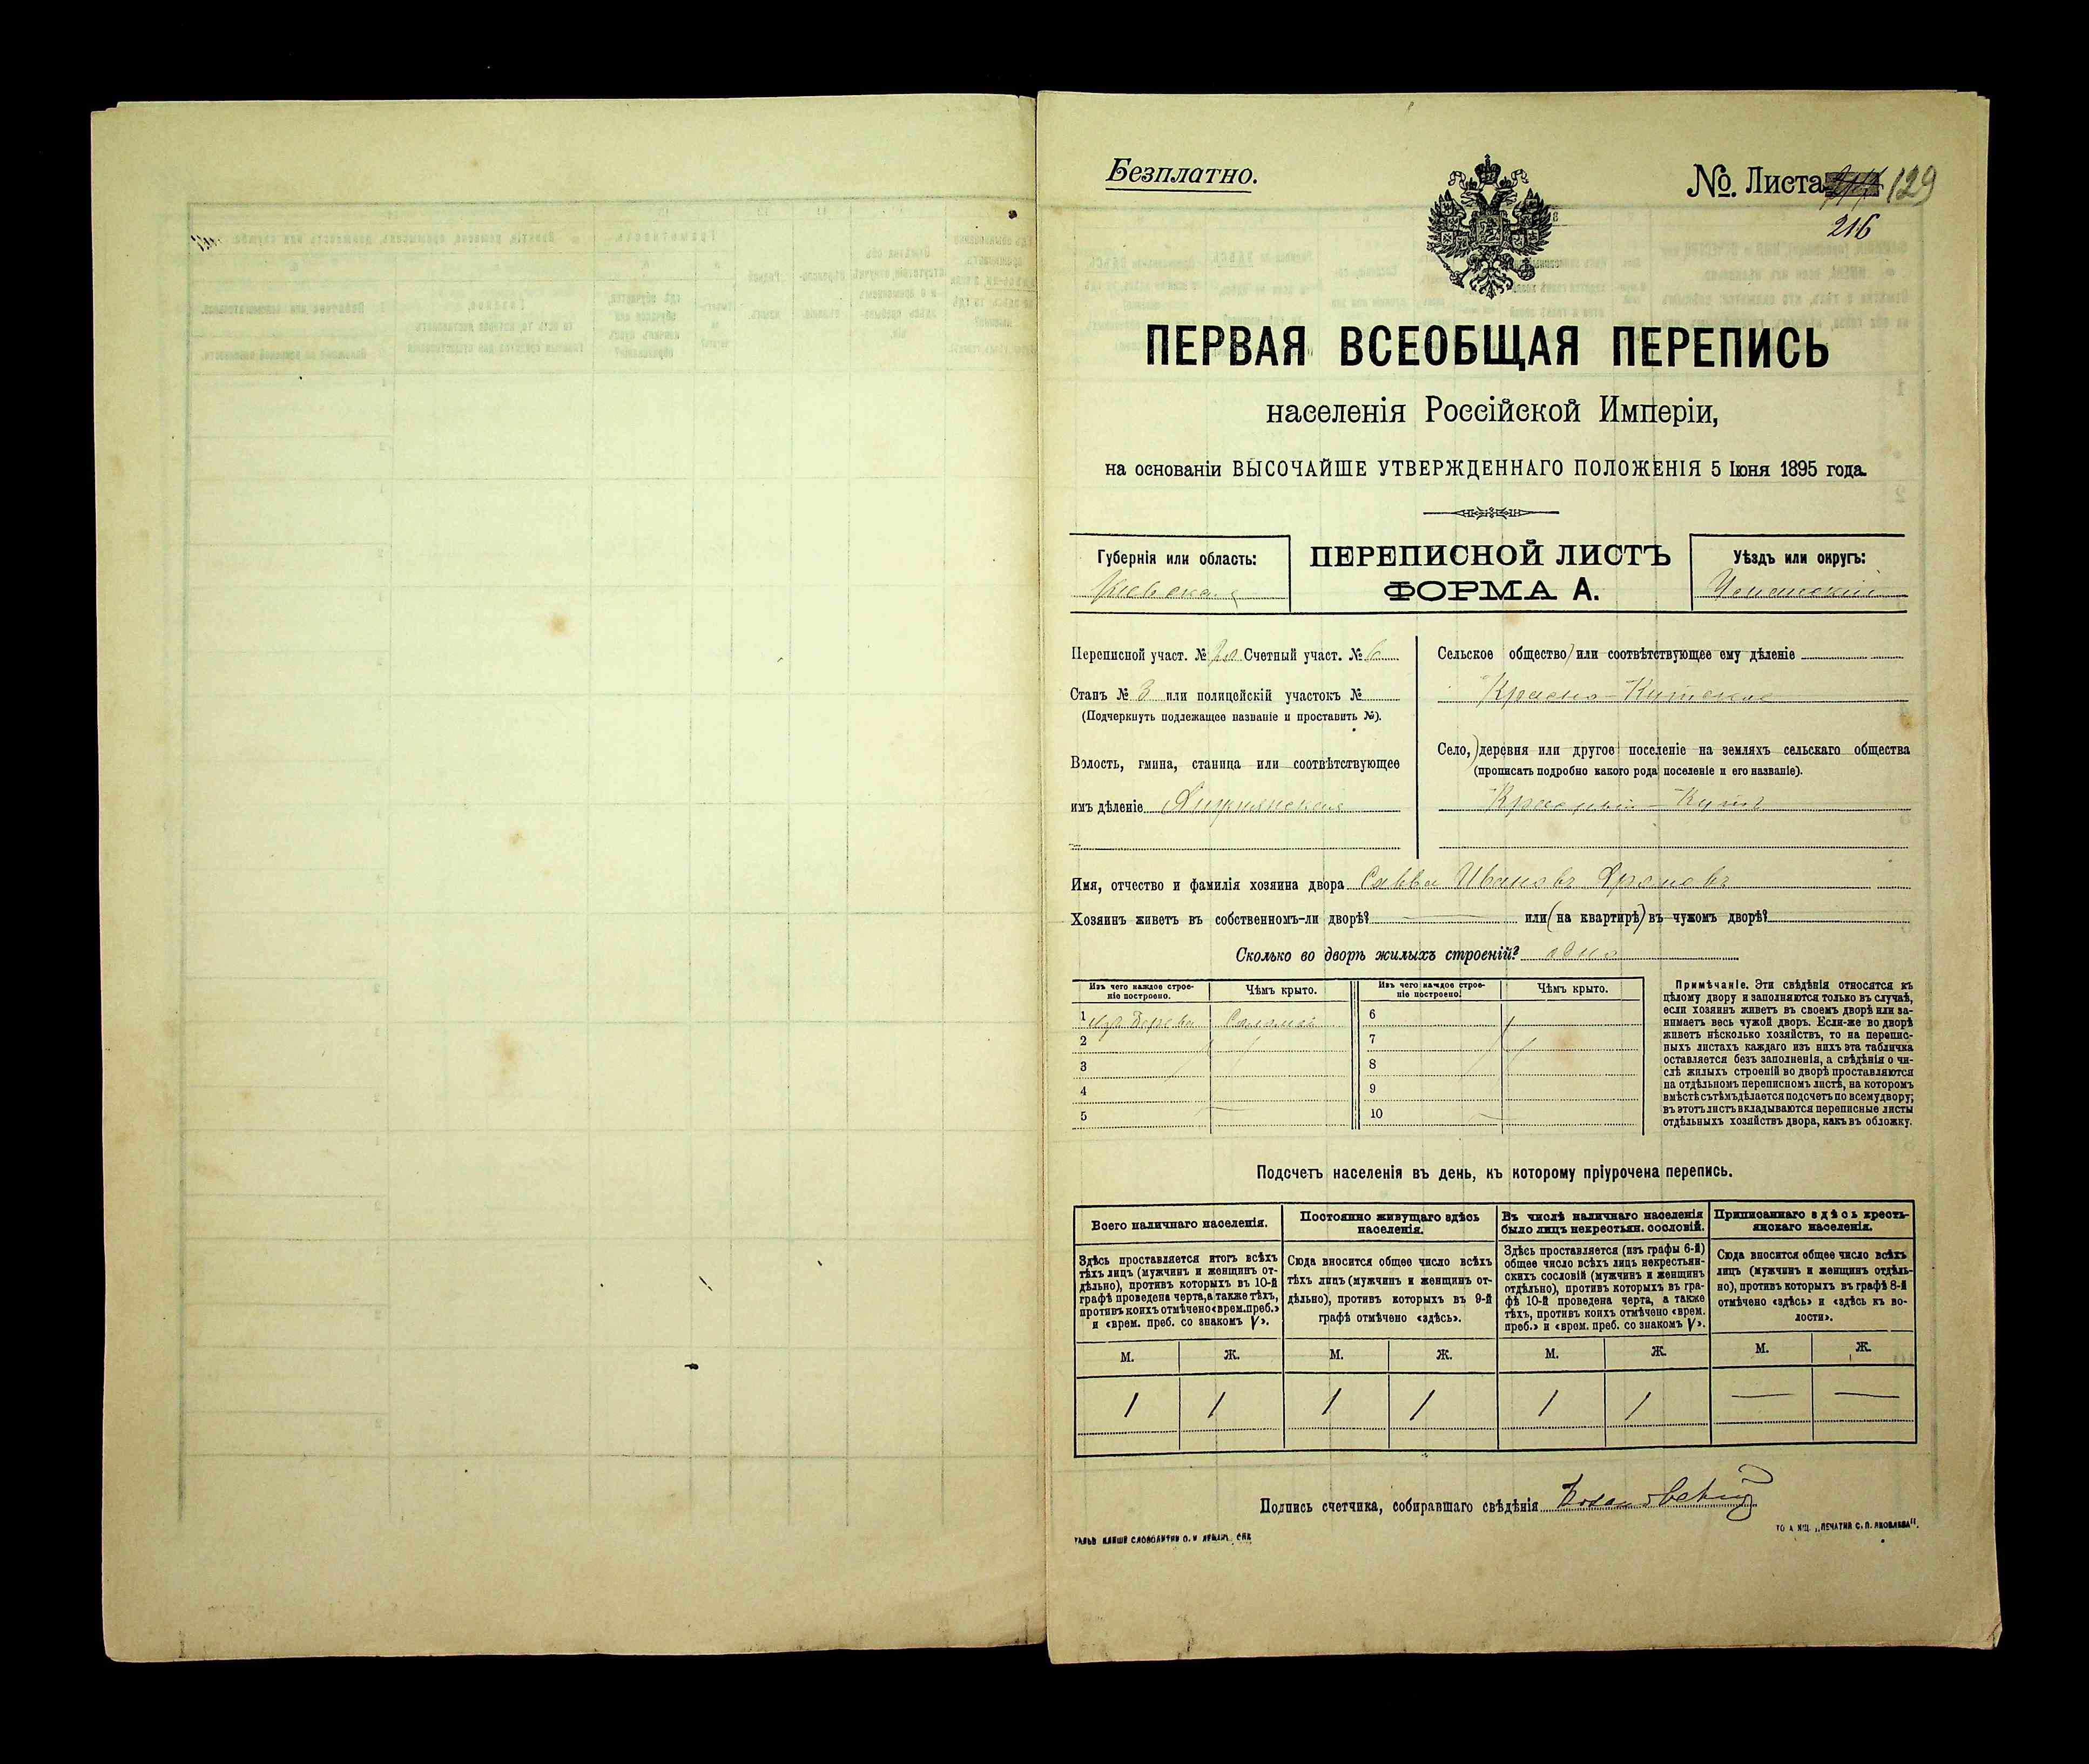 Безплатно.
№. Листа 129
216
ПЕРВАЯ ВСЕОБЩАЯ ПЕРЕПИСЬ
населенія Россійской Имперіи,
на основаніи ВЫСОЧАЙШЕ УТВЕРЖДЕННАГО ПОЛОЖЕНІЯ 5 Іюня 1895 года.
Губернія или область:
Кіевская
ПЕРЕПИСНОЙ ЛИСТЪ
ФОРМА А.
Уѣздъ или округъ:
Уманскій
Переписной участ. № Счетный участ. № 6
Станъ № 3 или полицейскій участокъ №
(Подчеркнуть подлежащее названіе и проставить №).
Волость, гмина, станица или соотвѣтствующее
имъ дѣленіе
Сельское общество или соотвѣтствующее ему дѣленіе
Красно-Кутское
Село, деревня или другое поселеніе на земляхъ сельскаго общества
(прописать подробно какого рода поселеніе и его названіе).
Красный-Кутъ
Имя, отчество и фамилія хозяина двора Савва Ивановъ
Хозяинъ живетъ въ собственномъ-ли дворѣ? или (на квартирѣ) въ чужомъ дворѣ?
Сколько во дворѣ жилыхъ строеній? одно
Изъ чего каждое строе-
ніе построено.
Чѣмъ крыто.
Изъ чего каждое строе-
ніе построено.
Чѣмъ крыто.
1 изъ дерева Соломой
2
3
4
5
6
7
8
9
10
Примѣчаніе. Эти свѣдѣнія относятся къ
цѣлому двору и заполняются только въ случаѣ,
если хозяинъ живетъ въ своемъ дворѣ или за-
нимаетъ весь чужой дворъ. Если-же во дворѣ
живетъ нѣсколько хозяйствъ, то на перепис-
ныхъ листахъ каждаго изъ нихъ эта табличка
оставляется безъ заполненія, а свѣдѣнія о чи-
слѣ жилыхъ строеній во дворѣ проставляются
на отдѣльномъ переписномъ листѣ, на которомъ
вмѣстѣ съ тѣмъ дѣлается подсчетъ по всему двору;
въ этотъ листъ вкладываются переписные листы
отдѣльныхъ хозяйствъ двора, какъ въ обложку.
Подсчетъ населенія въ день, къ которому пріурочена перепись.
Всего наличнаго населенія.
Здѣсь проставляется итогъ всѣхъ
тѣхъ лицъ (мужчинъ и женщинъ от-
дѣльно), противъ которыхъ въ 10-й
графѣ проведена черта, а также тѣхъ,
противъ коихъ отмѣчено «врем. преб.»
и «врем. преб. со знакомъ V».
Постоянно живущаго здѣсь
населенія.
Сюда вносится общее число всѣхъ
тѣхъ лицъ (мужчинъ и женщинъ от-
дѣльно), противъ которыхъ въ 9-й
графѣ отмѣчено «здѣсь».
Въ числѣ наличнаго населенія
было лицъ некрестьян. сословій.
Здѣсь проставляется (изъ графы 6-й)
общее число всѣхъ лицъ некрестьян-
скихъ сословій (мужчинъ и женщинъ
отдѣльно), противъ которыхъ въ гра-
фѣ 10-й проведена черта, а также
тѣхъ, противъ коихъ отмѣчено «врем.
преб.» и «врем. преб. со знакомъ V».
Приписаннаго здѣсь кресть-
янскаго населенія.
Сюда вносится общее число всѣхъ
лицъ (мужчинъ и женщинъ отдѣль-
но), противъ которыхъ въ графѣ 8-й
отмѣчено «здѣсь» и «здѣсь къ во-
лости».
М. Ж. М. Ж. М. Ж. М. Ж.
1 1 1 1 1 1 — —
Подпись счетчика, собиравшаго свѣдѣнія